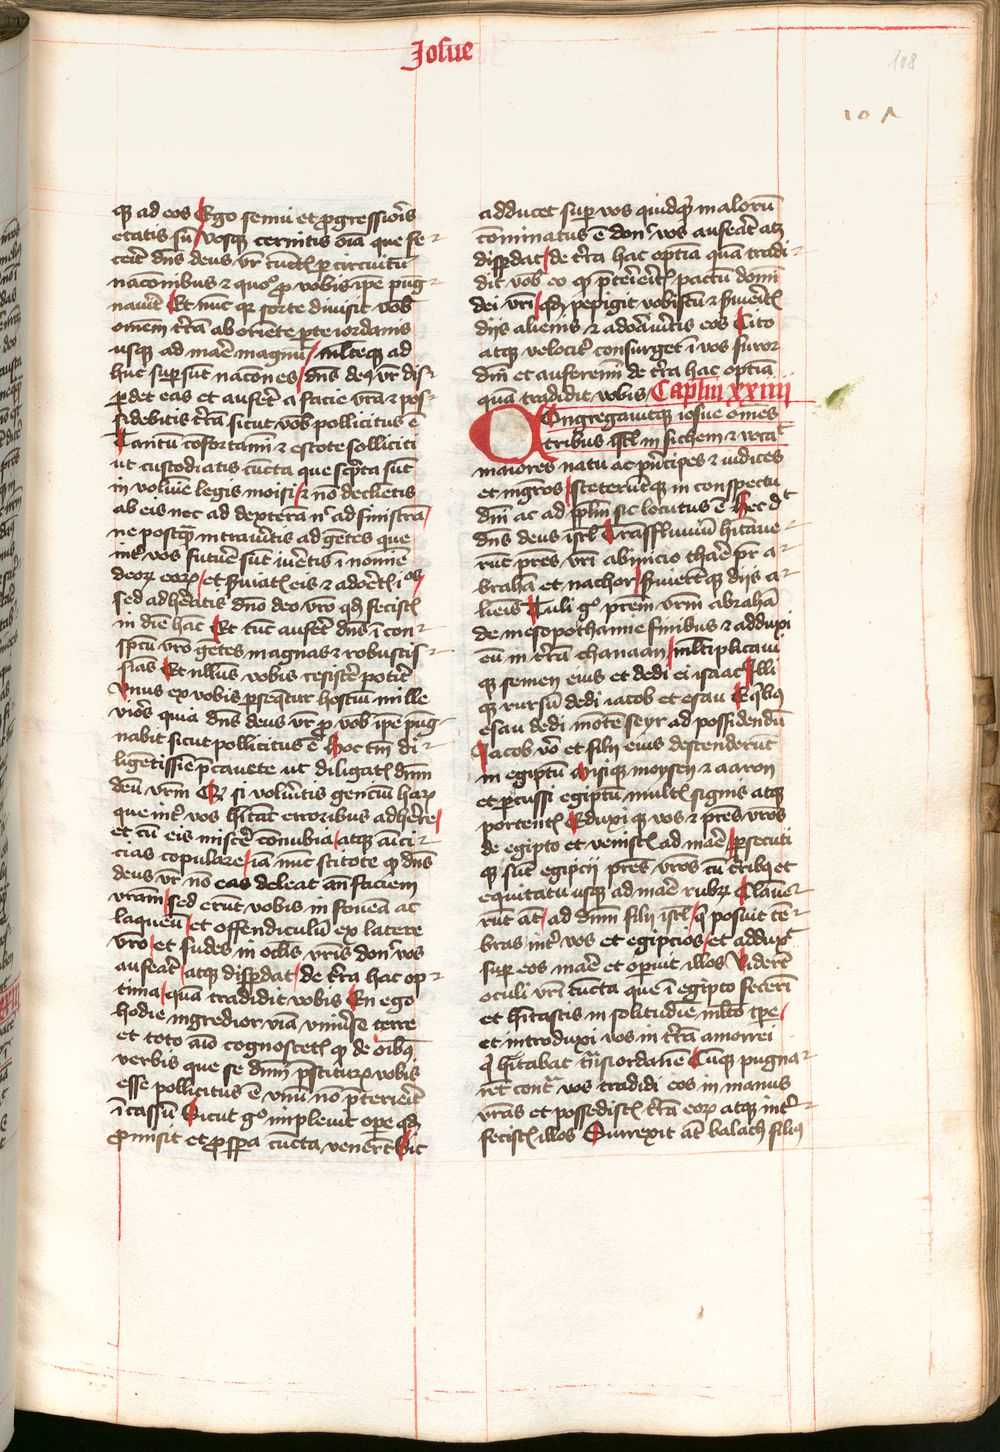 Iosue
108
101
qꝫ ad eos Ego senui et ꝓgressioris
etatis sū vosqꝫ cernitis oīa que fe-
cerit dn̄s deus vr̄ cūctꝭ ꝑ circuitū
nacōnibus ⁊ quō ꝓ vobis ipe pug-
nauit Et nūc qꝛ sorte diuisit vob̄
omēm tr̄ā ab oriente ꝑte iordanis
usqꝫ ad mare magnū / mlteqꝫ ad
huc suꝑsūt nacōnes / dn̄s deꝰ vr̄ dis-
ꝑdet eas et auferet a facie vrā ⁊ pos-
sidebitis tr̄ā sicut vob̄ pollicitus ē
Tantū cōfortamī ⁊ estote solliciti
ut custodiatis cūcta que scp̄ta sūt
in volumīe legis moisi / ⁊ nō declīetis
ab eis nec ad dexterā nᶜ ad sinistrā
ne postqꝫ intraueritis ad gētes que
int̄ vos future sūt iuretis ī nomīe
deoꝝ eoꝝ / et ẜuiatꝭ eis ⁊ adoretꝭ iłłos
sed adhereatis dn̄o deo vr̄o qd fecistꝭ
in die hac Et tūc auferet dn̄s ī con-
spc̄tu vr̄o gētes magnas ⁊ robustis-
sias Et nllus vobis resistē poterit
Vnus ex vobis ꝑseqtur hostiū mille
viros quia dn̄s deus vr̄ ꝓ vob̄ ipe pug-
nabit sicut pollicitus ē hoc tm̄ di-
ligētissīe p̄cauete ut diligatꝭ dn̄m
deū vr̄m Qꝫ si volueritis genciū haꝝ
que int̄ vos hītāt erroribus adherē
et cū eis miscē cōnubia / atqꝫ amici-
cias copulare / iā nūc scitote qꝫ dn̄s
deus vr̄ nō eas deleat an̄ faciem
vram / sed erūt vobis in foueā ac
laqueū / et offendiculū ex latere
vr̄o / et sudes in oclis vr̄is donᶜ vos
auferat atqꝫ disꝑdat / de tr̄a hac op-
tima / quā tradidit vobis En ego
hodie ingredior viā vniuẜe terre
et toto aīo cognoscetꝭ qꝫ de oībꝰ
verbis que se dn̄m p̄stituꝝ vobis
esse pollicitus ē vnū nō p̄terierit
ī cassū Sicut gᵒ impleuit ope qd
ꝓmisit et ꝓsꝑa cūcta venerūt Sic
adducet suꝑ vos quidqꝫ maloꝝ
cōminatus ē donᶜ vos auferat atqꝫ
disꝑdat / de tr̄a hac optīa quā tradi-
dit vob̄ eo qꝫ p̄terieritꝭ pactū domī
dei vr̄i / qd pepigit vobiscū ⁊ ẜuieritꝭ
dijs alienis ⁊ adoraueritis eos Cito
atqꝫ velocit̄ consurget ī vos furor
dn̄i et auferemī de tr̄a hac optīa
quā tradidit vobis / Caplm xxiiij
Congregauitqꝫ iosue omēs
tribus isrl̄ in sichem ⁊ vocat
maiores natu ac pn̄cipes ⁊ iudices
et mgr̄os / steterūtqꝫ in conspectu
dn̄i ac ad pplm sic locutus ē hec dᵗ
dn̄s deus isrl̄ Trās fluuiū hitaue-
rūt pr̄es vr̄i ab inicio thare pr̄ a-
brahā et nachor / ẜuierūtqꝫ dijs a-
lienis Tuli gᵒ prēm vr̄m abrahā
de mesopothamie finibus ⁊ adduxi
eū in tr̄ā chanaan / mltiplicaui
qꝫ semen eius et dedi ei isaac Illi
qꝫ rursū dedi iacob et esau E qbꝰ
esau dedi mōte seyr ad possidendū
Iacob vᵒ et filij eius descenderūt
in egiptū Misiqꝫ moysen ⁊ aaron
et ꝑcussi egiptū multꝭ signis atqꝫ
portentꝭ Eduxi qꝫ vos ⁊ pr̄es vr̄os
de egipto et venistꝭ ad mare / ꝑsecuti
qꝫ sūt egipcij pr̄es vr̄os cū c̄ribꝰ et
equitatu usqꝫ ad mare rubꝝ Clama-
rūt at̄ / ad dn̄m filij isrl̄ / q posuit te-
bras int̄ vos et egipcios / et adduxᵗ
suꝑ eos mare et opuit illos Viderūt
oculi vr̄i cūcta que ī egipto fecerī
et hītastis in solitudīe mlto tpe /
et introduxi vos in tr̄ā amorrei
q hītabat tn̄siordanē Cūqꝫ pugna-
rēt contᵃ vos tradidi eos in manus
vr̄as et possedistꝭ tr̄ā eoꝝ atqꝫ intᵉ-
fecistꝭ illos Surrexit at̄ balach filiꝰ